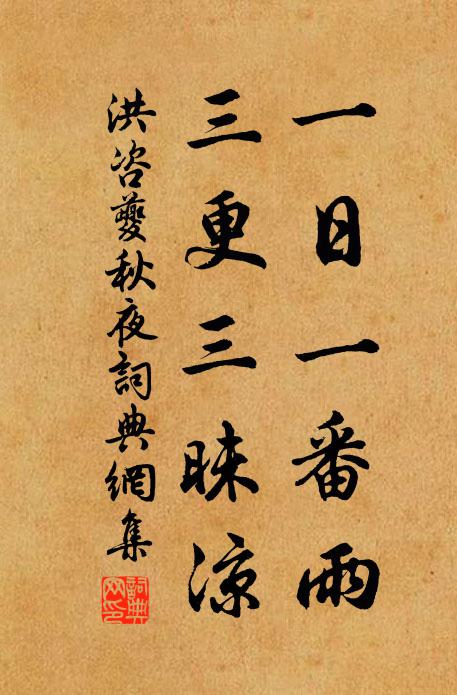 一日一番雨
三更三昧涼
洪咨夔秋夜詞典網集
詞典
网印